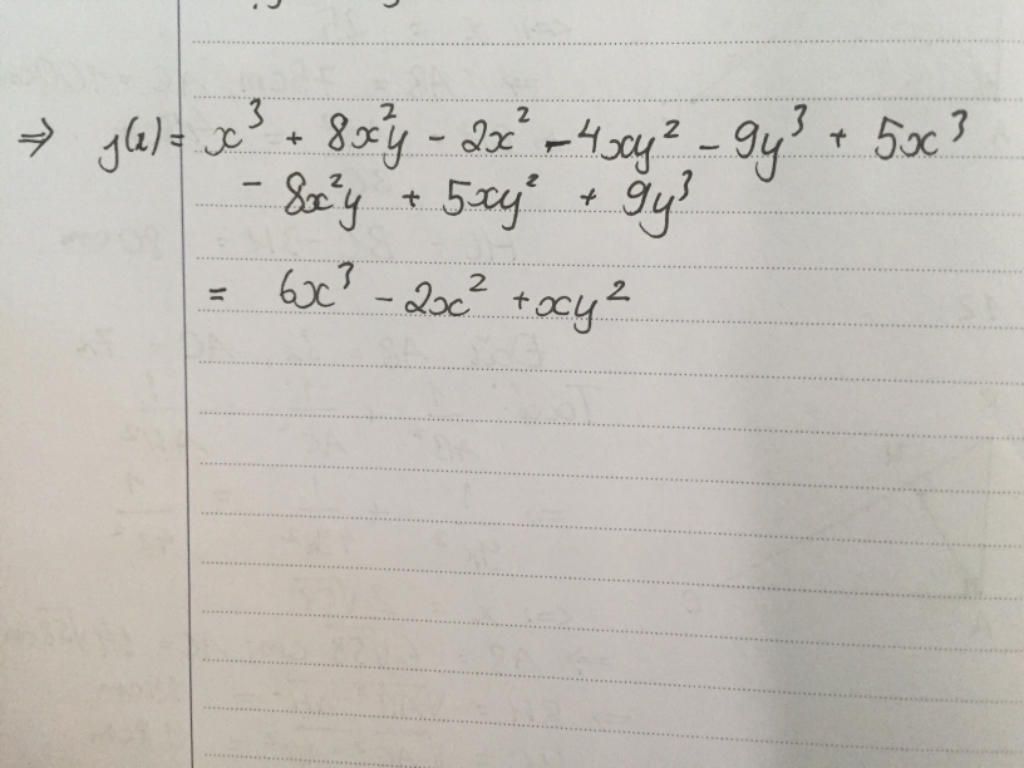 ⇒ y(x) = x³ + 8x²y - 2x² - 4xy² - 9y³ + 5x³
- 8x²y + 5xy² + 9y³
= 6x³ - 2x² + xy²